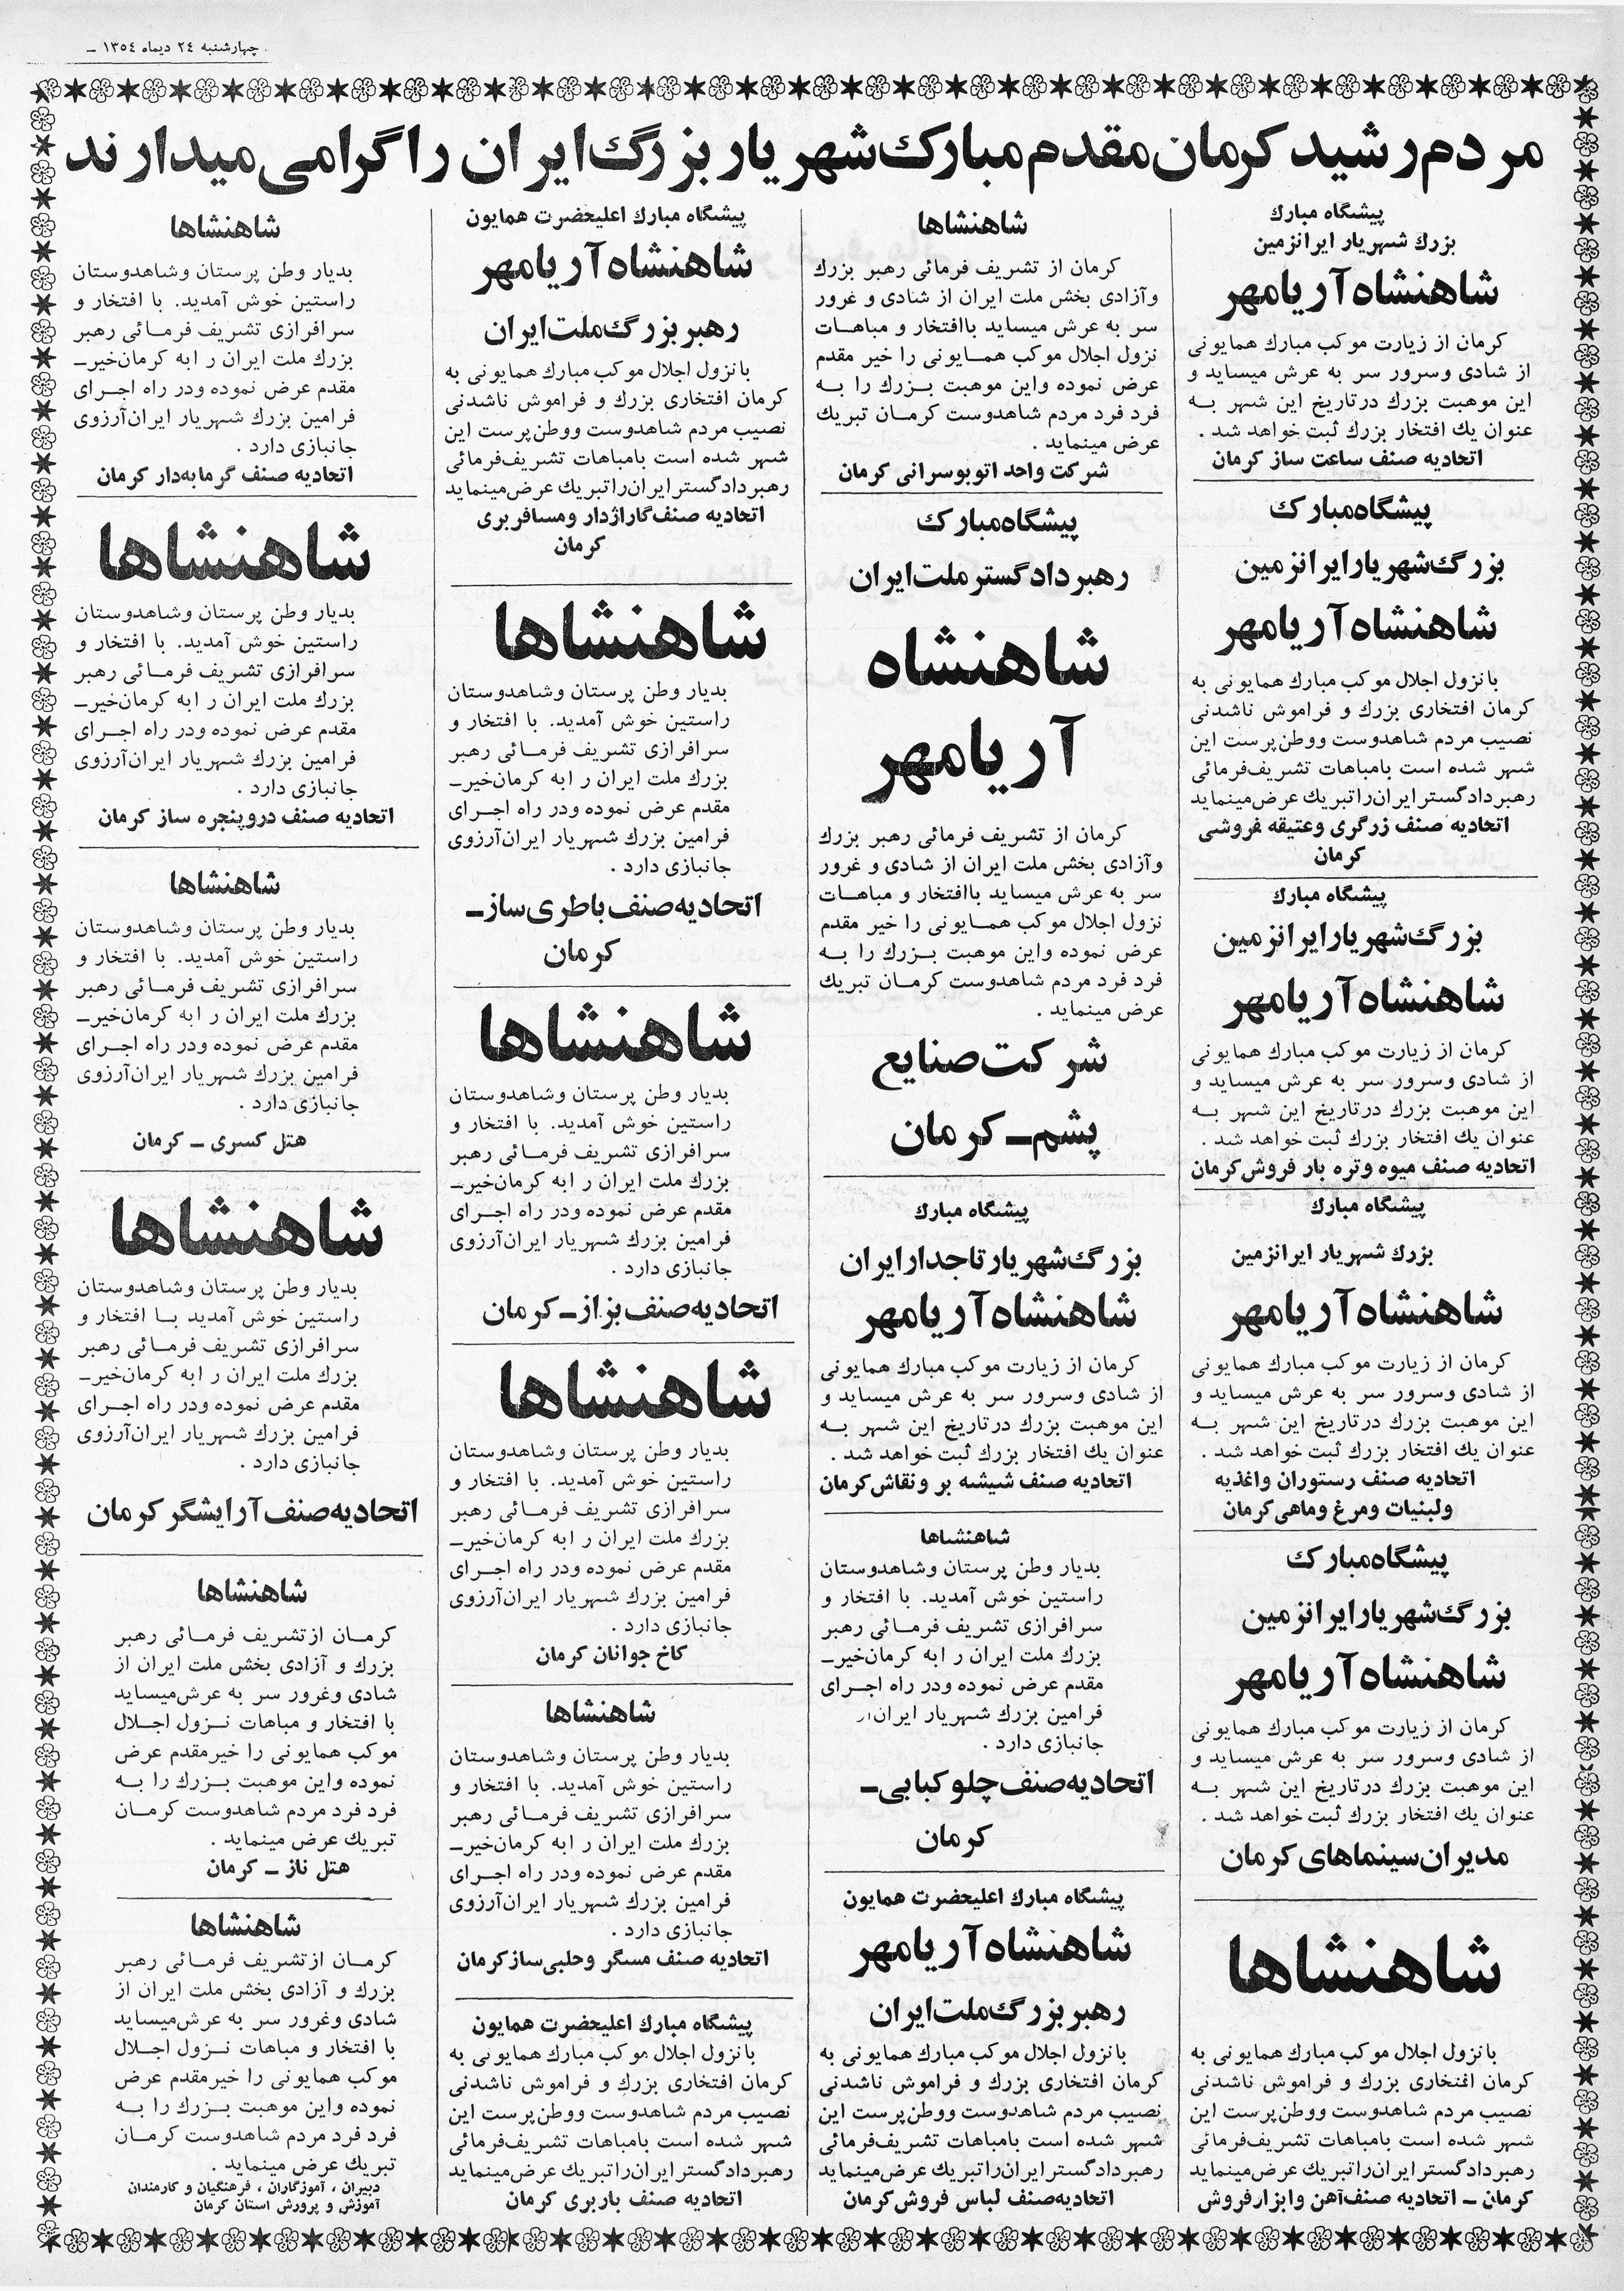 چهارشنبه ٢٤ دیماه ١٣٥٤ ـ
مردم رشید کرمان مقدم مبارک شهریار بزرگ ایران را گرامی میدارند
پیشگاه مبارك
بزرك شهریار ایرانزمین
شاهنشاه آریامهر
کرمان از زیارت موکب مبارك همایونی
از شادی وسرور سر به عرش میساید و
این موهبت بزرك درتاریخ این شهر بـه
عنوان یك افتخار بزرك ثبت خواهد شد .
اتحادیه صنف ساعت ساز کرمان
پیشگاه مبارک
بزرگ شهریار ایرانزمین
شاهنشاه آریامهر
بانزول اجلال موکب مبارك همایونی به
کرمان افتخاری بزرك و فراموش ناشدنی
نصیب مردم شاهدوست ووطن‌پرست این
شهر شده است بامباهات تشریف‌فرمائی
رهبردادگستر ایران‌راتبریك عرض‌مینماید
اتحادیه صنف زرگری وعتیقه فروشی
کرمان
پیشگاه مبارك
بزرگ شهریار ایرانزمین
شاهنشاه آریامهر
کرمان از زیارت موکب مبارك همایونی
از شادی وسرور سر به عرش میساید و
این موهبت بزرك درتاریخ این شهر بـه
عنوان یك افتخار بزرك ثبت خواهد شد .
اتحادیه صنف میوه وتره بار فروش کرمان
پیشگاه مبارك
بزرك شهریار ایرانزمین
شاهنشاه آریامهر
کرمان از زیارت موکب مبارك همایونی
از شادی وسرور سر به عرش میساید و
این موهبت بزرك درتاریخ این شهر بـه
عنوان یك افتخار بزرك ثبت خواهد شد .
اتحادیه صنف رستوران واغذیه
ولبنیات ومرغ وماهی کرمان
پیشگاه مبارک
بزرگ شهریار ایرانزمین
شاهنشاه آریامهر
کرمان از زیارت موکب مبارك همایونی
از شادی وسرور سر به عرش میساید و
این موهبت بزرك درتاریخ این شهر بـه
عنوان یك افتخار بزرك ثبت خواهد شد .
مدیران سینماهای کرمان
شاهنشاها
بانزول اجلال موکب مبارك همایونی به
کرمان افتخاری بزرك و فراموش ناشدنی
نصیب مردم شاهدوست ووطن‌پرست این
شهر شده است بامباهات تشریف‌فرمائی
رهبردادگستر ایران‌راتبریك عرض‌مینماید
کرمان ـ اتحادیه صنف آهن وابزارفروش
شاهنشاها
کرمان از تشریف فرمائی رهبر بزرك
وآزادی بخش ملت ایران از شادی و غرور
سر به عرش میساید باافتخار و مباهـات
نزول اجلال موکب همـایونی را خیر مقدم
عرض نموده واین موهبت بـزرك را بـه
فرد فرد مردم شاهدوست کرمـان تبریك
عرض مینماید .
شرکت واحد اتوبوسرانی کرمان
پیشگاه مبارک
رهبر دادگستر ملت ایران
شاهنشاه
آریامهر
کرمان از تشریف فرمائی رهبر بزرك
وآزادی بخش ملت ایران از شادی و غرور
سر به عرش میساید باافتخار و مباهـات
نزول اجلال موکب همـایونی را خیر مقدم
عرض نموده واین موهبت بـزرك را بـه
فرد فرد مردم شاهدوست کرمـان تبریك
عرض مینماید .
شرکت صنایع
پشم ـ کرمان
پیشگاه مبارك
بزرگ شهریار تاجدار ایران
شاهنشاه آریامهر
کرمان از زیارت موکب مبارك همایونی
از شادی وسرور سر به عرش میساید و
این موهبت بزرك درتاریخ این شهر بـه
عنوان یك افتخار بزرك ثبت خواهد شد .
اتحادیه صنف شیشه بر ونقاش کرمان
شاهنشاها
بدیار وطن پرستان وشاهدوستان
راستین خوش آمدید. با افتخار و
سرافرازی تشریف فرمـائی رهبر
بزرك ملت ایران ر ابه کرمان‌خیرـ
مقدم عرض نموده ودر راه اجـرای
فرامین بزرك شهریار ایران
جانبازی دارد .
اتحادیه صنف چلوکبابی ـ
کرمان
پیشگاه مبارك اعلیحضرت همایون
شاهنشاه آریامهر
رهبر بزرگ ملت ایران
بانزول اجلال موکب مبارك همایونی به
کرمان افتخاری بزرك و فراموش ناشدنی
نصیب مردم شاهدوست ووطن‌پرست این
شهر شده است بامباهات تشریف‌فرمائی
رهبردادگستر ایران‌راتبریك عرض‌مینماید
اتحادیه‌صنف لباس فروش کرمان
پیشگاه مبارك اعلیحضرت همایون
شاهنشاه آریامهر
رهبر بزرگ ملت ایران
بانزول اجلال موکب مبارك همایونی به
کرمان افتخاری بزرك و فراموش ناشدنی
نصیب مردم شاهدوست ووطن‌پرست این
شهر شده است بامباهات تشریف‌فرمائی
رهبردادگستر ایران‌راتبریك عرض‌مینماید
اتحادیه صنف گاراژدار ومسافربری
کرمان
شاهنشاها
بدیار وطن پرستان وشاهدوستان
راستین خوش آمدید. با افتخار و
سرافرازی تشریف فرمـائی رهبر
بزرك ملت ایران ر ابه کرمان‌خیرـ
مقدم عرض نموده ودر راه اجـرای
فرامین بزرك شهریار ایران‌آرزوی
جانبازی دارد .
اتحادیه صنف باطری ساز ـ
کرمان
شاهنشاها
بدیار وطن پرستان وشاهدوستان
راستین خوش آمدید. با افتخار و
سرافرازی تشریف فرمـائی رهبر
بزرك ملت ایران ر ابه کرمان‌خیرـ
مقدم عرض نموده ودر راه اجـرای
فرامین بزرك شهریار ایران‌آرزوی
جانبازی دارد .
اتحادیه صنف بزاز ـ کرمان
شاهنشاها
بدیار وطن پرستان وشاهدوستان
راستین خوش آمدید. با افتخار و
سرافرازی تشریف فرمـائی رهبر
بزرك ملت ایران ر ابه کرمان‌خیرـ
مقدم عرض نموده ودر راه اجـرای
فرامین بزرك شهریار ایران‌آرزوی
جانبازی دارد .
کاخ جوانان کرمان
شاهنشاها
بدیار وطن پرستان وشاهدوستان
راستین خوش آمدید. با افتخار و
سرافرازی تشریف فرمـائی رهبر
بزرك ملت ایران ر ابه کرمان‌خیرـ
مقدم عرض نموده ودر راه اجـرای
فرامین بزرك شهریار ایران‌آرزوی
جانبازی دارد .
اتحادیه صنف مسگر وحلبی‌ساز کرمان
پیشگاه مبارك اعلیحضرت همایون
بانزول اجلال موکب مبارك همایونی به
کرمان افتخاری بزرك و فراموش ناشدنی
نصیب مردم شاهدوست ووطن‌پرست این
شهر شده است بامباهات تشریف‌فرمائی
رهبردادگستر ایران‌راتبریك عرض‌مینماید
اتحادیه صنف باربری کرمان
شاهنشاها
بدیار وطن پرستان وشاهدوستان
راستین خوش آمدید. با افتخار و
سرافرازی تشریف فرمـائی رهبر
بزرك ملت ایران ر ابه کرمان‌خیرـ
مقدم عرض نموده ودر راه اجـرای
فرامین بزرك شهریار ایران‌آرزوی
جانبازی دارد .
اتحادیه صنف گرمابه‌دار کرمان
شاهنشاها
بدیار وطن پرستان وشاهدوستان
راستین خوش آمدید. با افتخار و
سرافرازی تشریف فرمـائی رهبر
بزرك ملت ایران ر ابه کرمان‌خیرـ
مقدم عرض نموده ودر راه اجـرای
فرامین بزرك شهریار ایران‌آرزوی
جانبازی دارد .
اتحادیه صنف دروپنجره ساز کرمان
شاهنشاها
بدیار وطن پرستان وشاهدوستان
راستین خوش آمدید. با افتخار و
سرافرازی تشریف فرمـائی رهبر
بزرك ملت ایران ر ابه کرمان‌خیرـ
مقدم عرض نموده ودر راه اجـرای
فرامین بزرك شهریار ایران‌آرزوی
جانبازی دارد .
هتل کسری ـ کرمان
شاهنشاها
بدیار وطن پرستان وشاهدوستان
راستین خوش آمدید بـا افتخار و
سرافرازی تشریف فرمـائی رهبر
بزرك ملت ایران ر ابه کرمان‌خیرـ
مقدم عرض نموده ودر راه اجـرای
فرامین بزرك شهریار ایران‌آرزوی
جانبازی دارد .
اتحادیه صنف آرایشگر کرمان
شاهنشاها
کرمـان ازتشریف فرمـائی رهبر
بزرك و آزادی بخش ملت ایران از
شادی وغرور سر به عرش‌میساید
با افتخار و مباهات نـزول اجـلال
موکب همایونی را خیرمقدم عرض
نموده واین موهبت بـزرك را بـه
فرد فرد مردم شاهدوست کرمـان
تبریك عرض مینماید .
هتل ناز ـ کرمان
شاهنشاها
کرمـان ازتشریف فرمـائی رهبر
بزرك و آزادی بخش ملت ایران از
شادی وغرور سر به عرش‌میساید
با افتخار و مباهات نـزول اجـلال
موکب همایونی را خیرمقدم عرض
نموده واین موهبت بـزرك را بـه
فرد فرد مردم شاهدوست کرمـان
تبریك عرض مینماید .
دبیران ، آموزگاران ، فرهنگیان و کارمندان
آموزش و پرورش استان کرمان